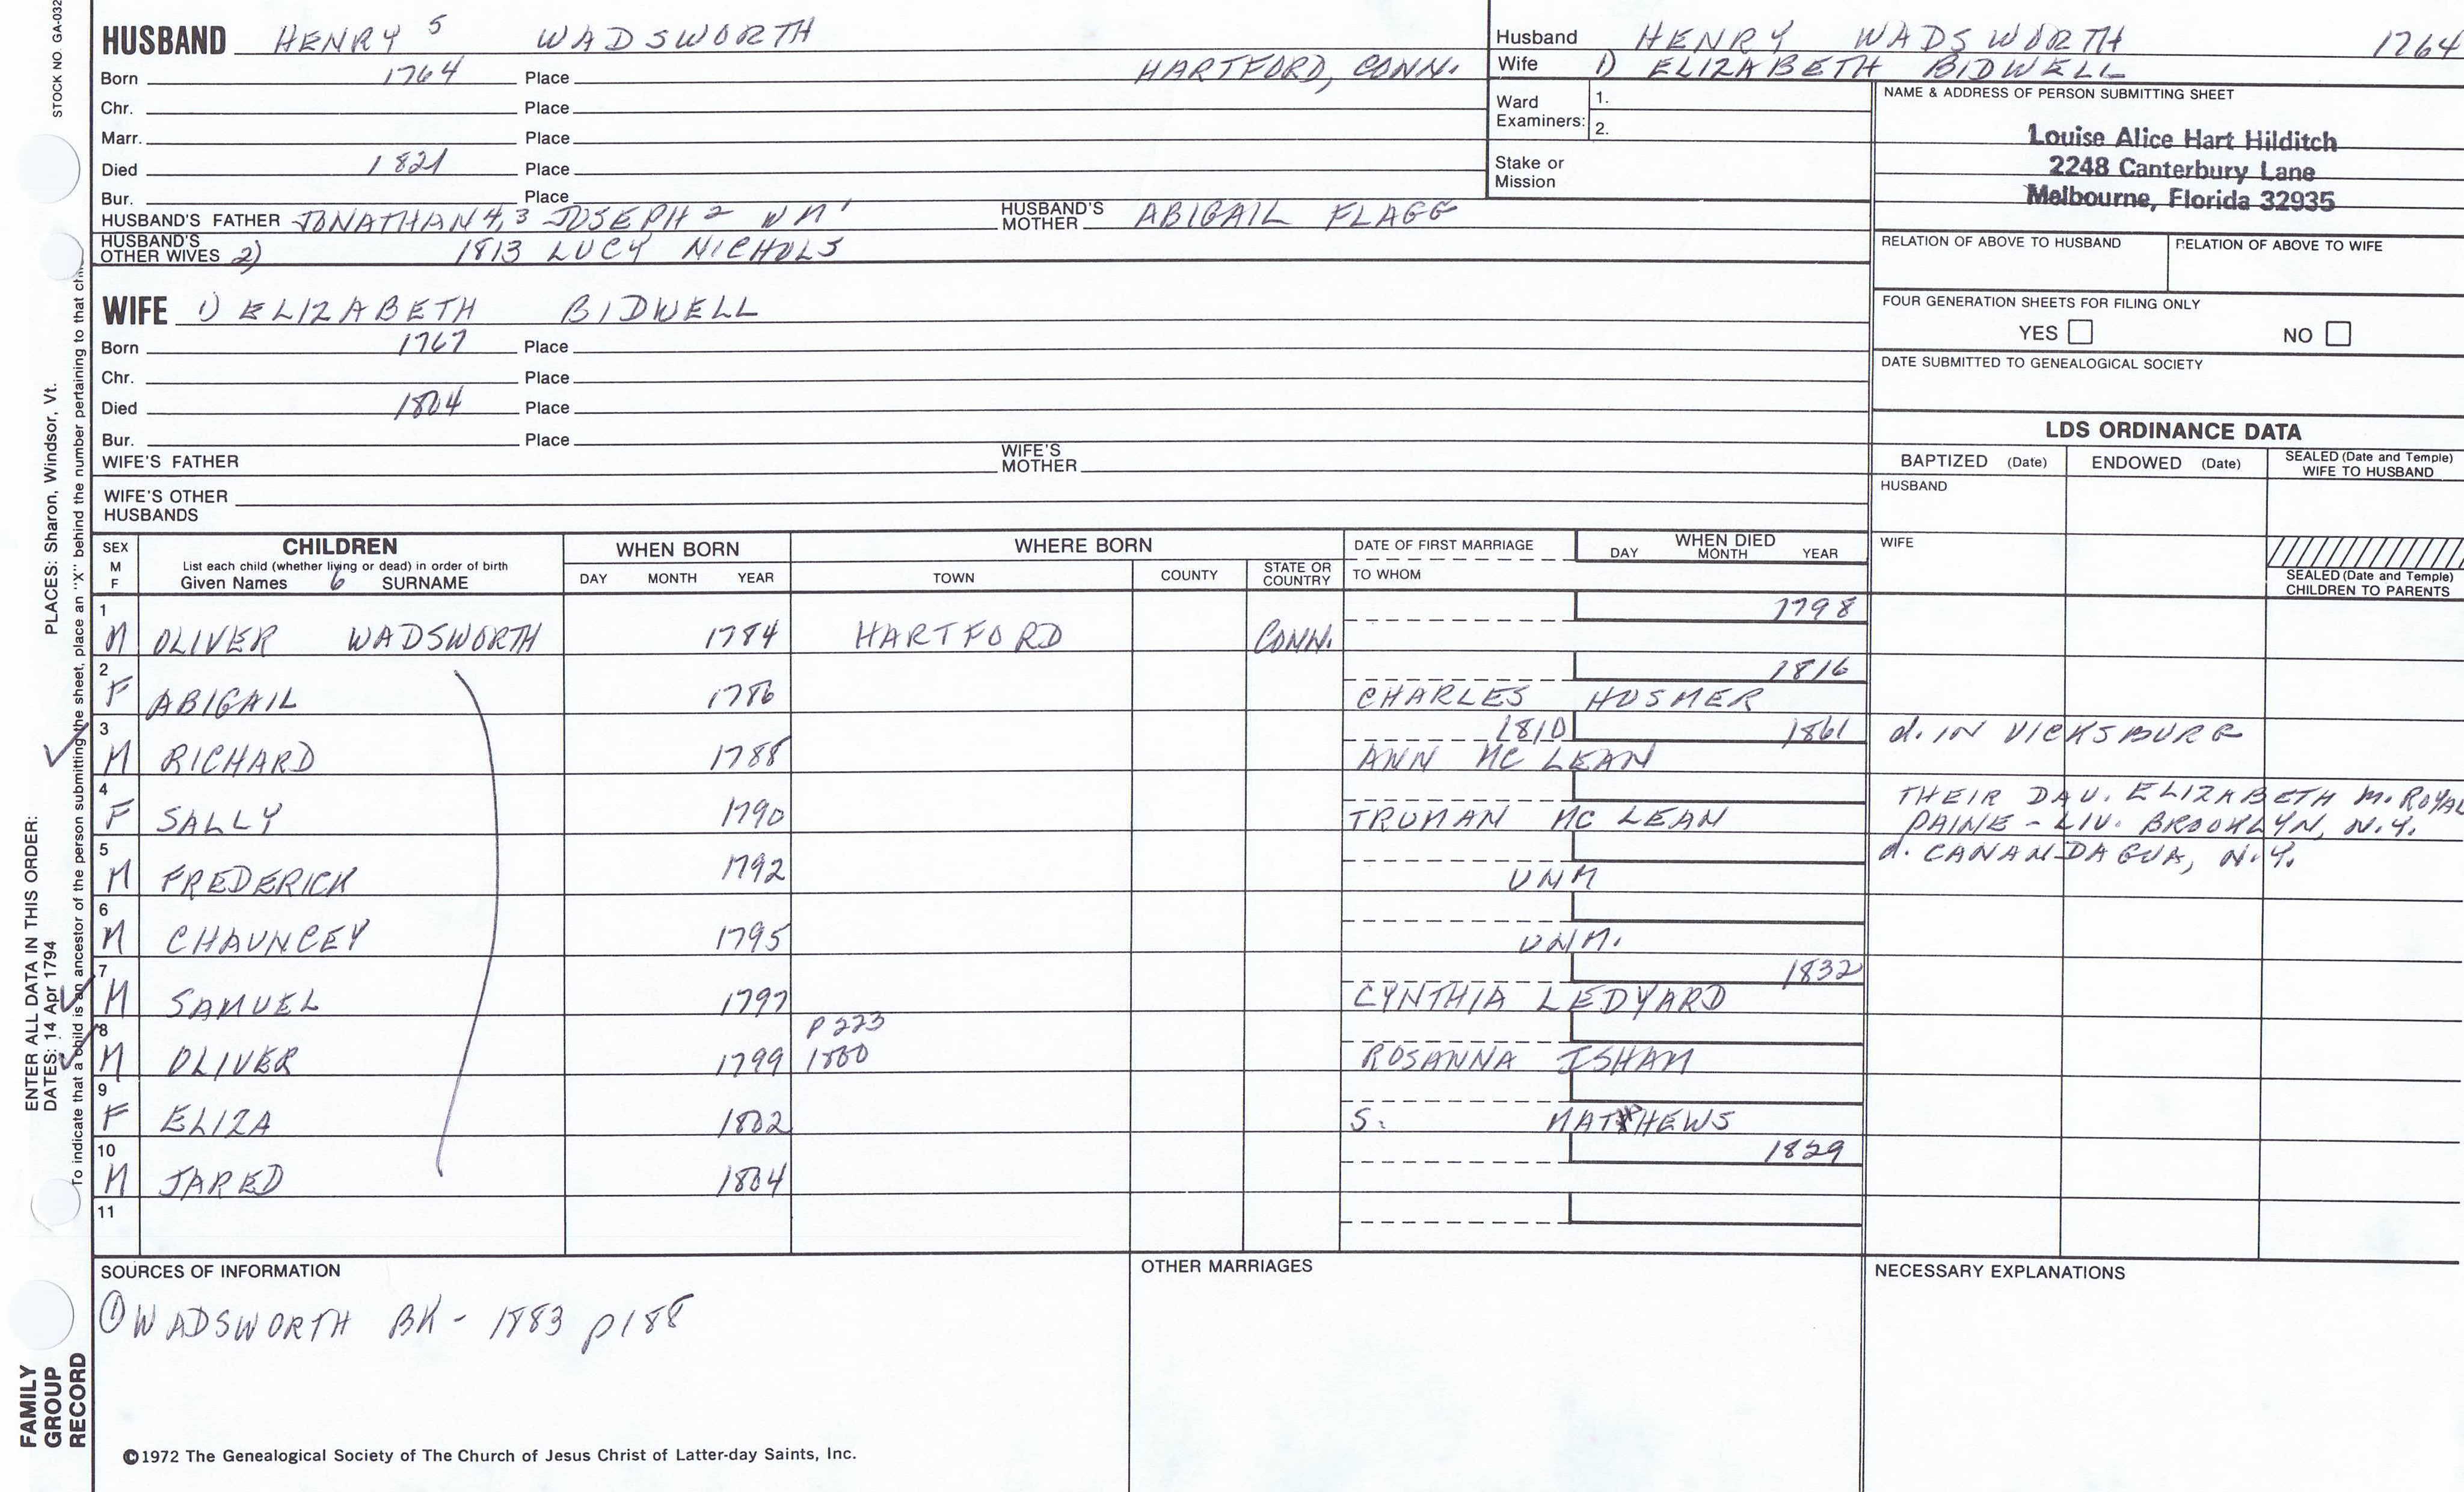 STOCK NO. GA-032
HUSBAND HENRY 5 WADSWORTH
Born 1764 Place HARTFORD, CONN.
Chr. Place
Marr. Place
Died 1821 Place
Bur. Place
HUSBAND'S FATHER JONATHAN 4,3 JOSEPH 2 WM 1 HUSBAND'S MOTHER ABIGAIL FLAGG
HUSBAND'S OTHER WIVES 2) 1813 LUCY NICHOLS
WIFE 1) ELIZABETH BIDWELL
Born 1767 Place
Chr. Place
Died 1804 Place
Bur. Place
WIFE'S FATHER WIFE'S MOTHER
WIFE'S OTHER HUSBANDS
Husband HENRY WADSWORTH 1764
Wife 1) ELIZABETH BIDWELL
Ward Examiners: 1.
2.
Stake or Mission
NAME & ADDRESS OF PERSON SUBMITTING SHEET
Louise Alice Hart Hilditch
2248 Canterbury Lane
Melbourne, Florida 32935
RELATION OF ABOVE TO HUSBAND RELATION OF ABOVE TO WIFE
FOUR GENERATION SHEETS FOR FILING ONLY
YES NO
DATE SUBMITTED TO GENEALOGICAL SOCIETY
LDS ORDINANCE DATA
BAPTIZED (Date) ENDOWED (Date) SEALED (Date and Temple) WIFE TO HUSBAND
HUSBAND
WIFE
SEALED (Date and Temple) CHILDREN TO PARENTS
SEX M F
CHILDREN
List each child (whether living or dead) in order of birth
Given Names 6 SURNAME
WHEN BORN
DAY MONTH YEAR
WHERE BORN
TOWN COUNTY STATE OR COUNTRY
DATE OF FIRST MARRIAGE
TO WHOM
WHEN DIED
DAY MONTH YEAR
1 1798
M OLIVER WADSWORTH 1784 HARTFORD CONN.
2 1816
F ABIGAIL 1786 CHARLES HOSMER
3 1810 1861 d. IN VICKSBURG
M RICHARD 1788 ANN MC LEAN
4 THEIR DAU. ELIZABETH M. ROYAL
F SALLY 1790 TRUMAN MC LEAN PAINE - LIV. BROOKLYN, N.Y.
5 d. CANANDAGUA, N.Y.
M FREDERICK 1792 UNM
6
M CHAUNCEY 1795 UNM.
7 1832
M SAMUEL 1797 CYNTHIA LEDYARD
8 P 223
M OLIVER 1799 1800 ROSANNA ISHAM
9
F ELIZA 1802 S. MATTHEWS
10 1829
M JARED 1804
11
SOURCES OF INFORMATION
① WADSWORTH BK - 1883 p188
OTHER MARRIAGES
NECESSARY EXPLANATIONS
©1972 The Genealogical Society of The Church of Jesus Christ of Latter-day Saints, Inc.
FAMILY
GROUP
RECORD
ENTER ALL DATA IN THIS ORDER:
DATES: 14 Apr 1794 PLACES: Sharon, Windsor, Vt.
To indicate that a child is an ancestor of the person submitting the sheet, place an "X" behind the number pertaining to that